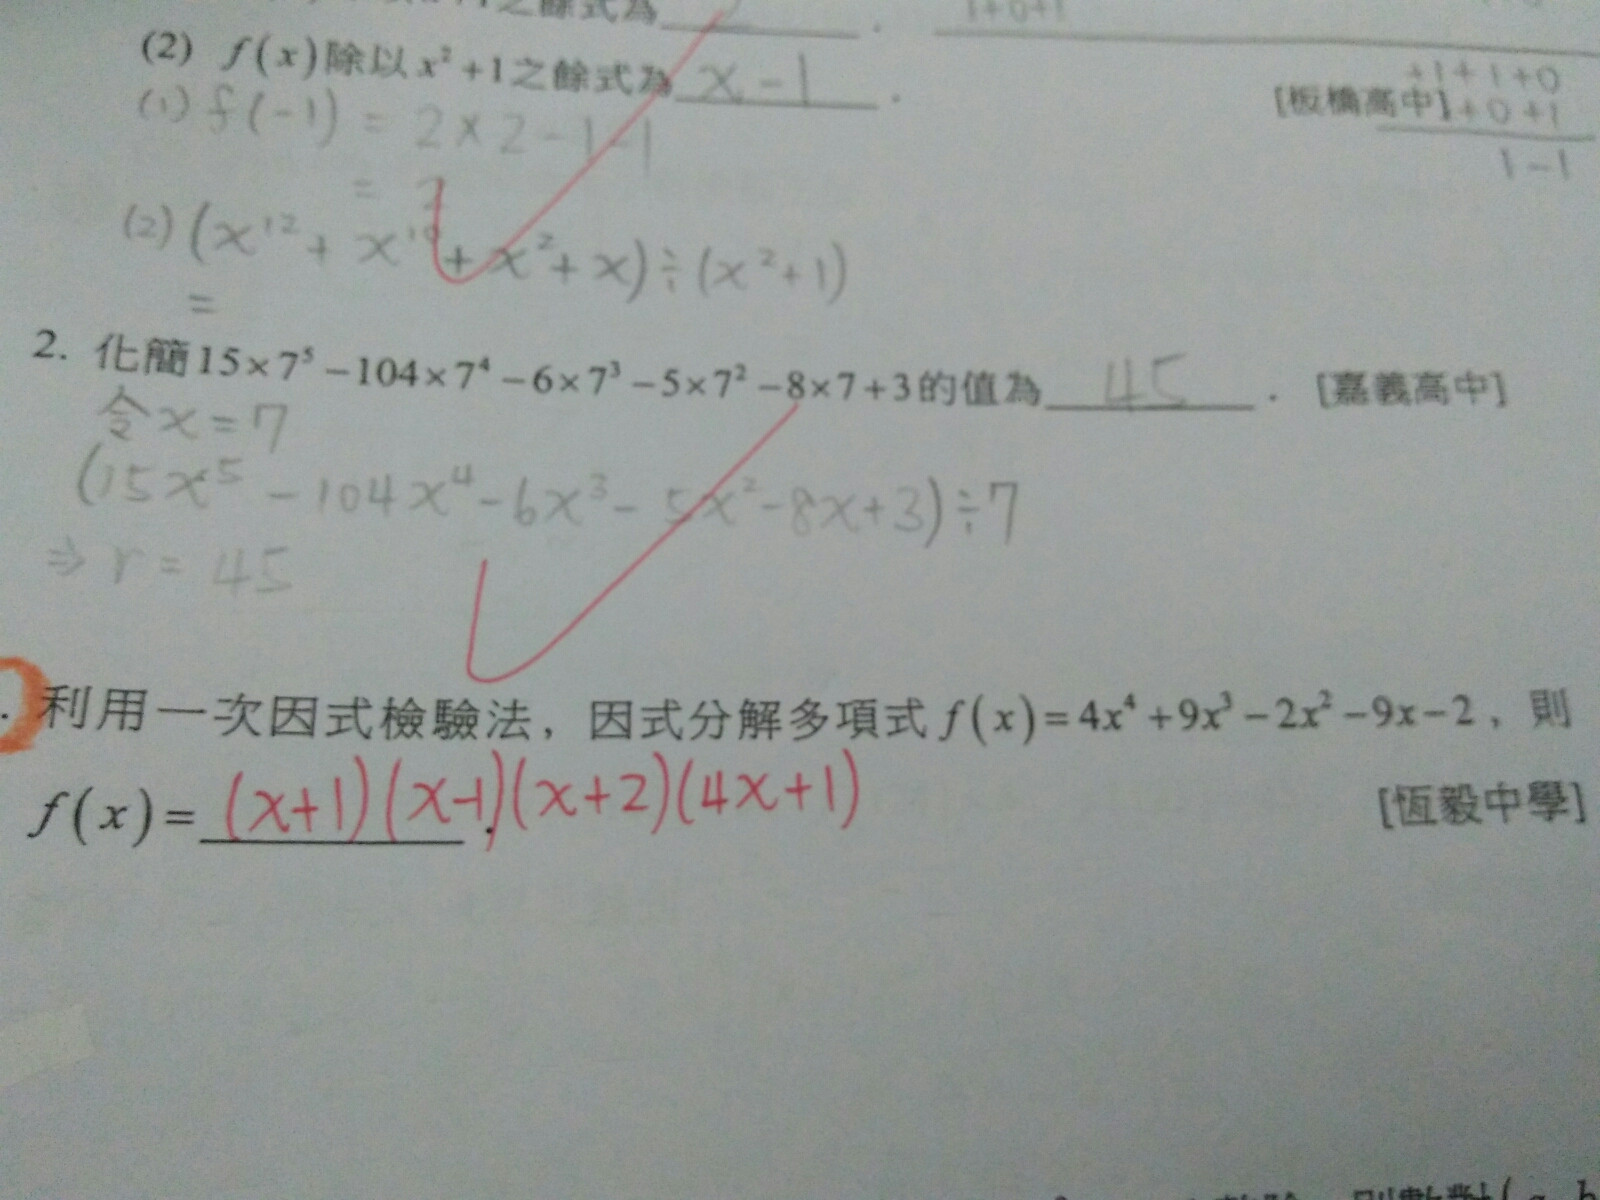 之餘式為
1+0+1
(2) f(x)除以x²+1之餘式為 x-1 .
+1+1+0
[板橋高中] 1+0+1
1-1
(1) f(-1) = 2×2-1-1
= 2
(2) (x¹²+x¹⁰+x²+x)÷(x²+1)
=
2. 化簡15×7⁵-104×7⁴-6×7³-5×7²-8×7+3的值為 45 . [嘉義高中]
令x=7
(15x⁵-104x⁴-6x³-5x²-8x+3)÷7
⇒ r = 45
. 利用一次因式檢驗法，因式分解多項式f(x)=4x⁴+9x³-2x²-9x-2，則
f(x)= (x+1)(x-1)(x+2)(4x+1) . [恆毅中學]